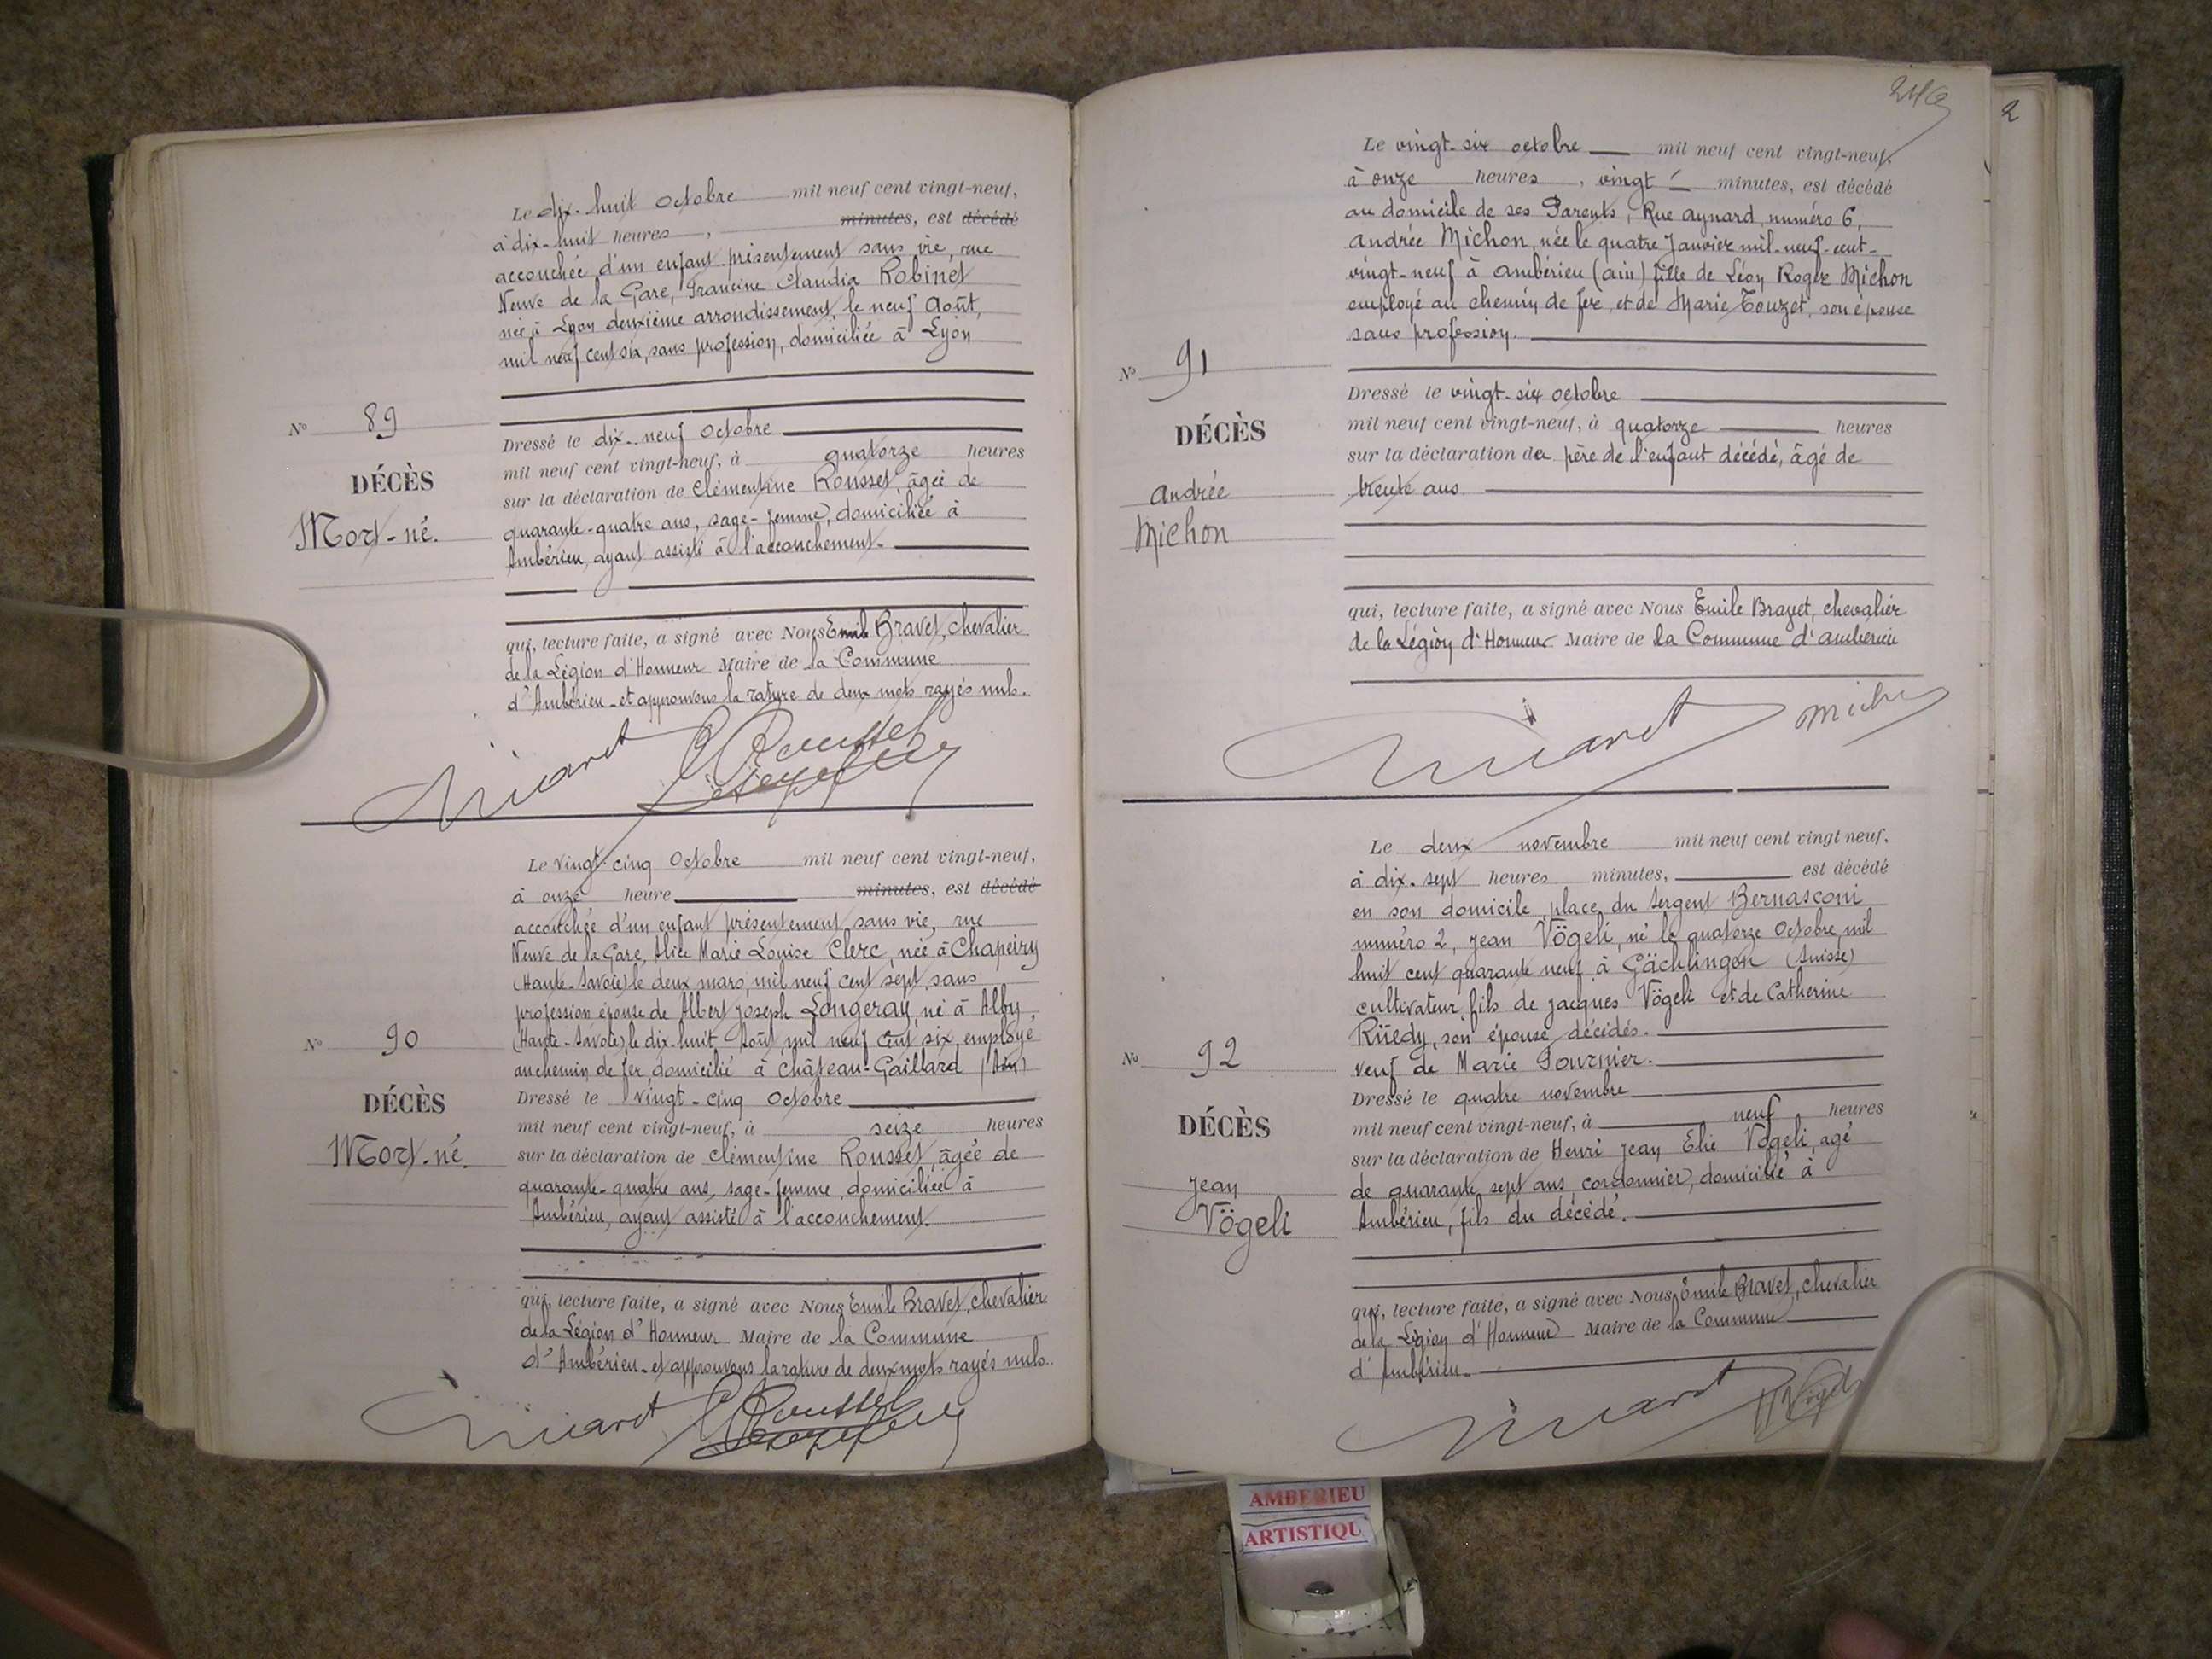 Le dix-huit Octobre mil neuf cent vingt-neuf,
à dix-huit heures, minutes, est décédé
accouchée d'un enfant présentement sans vie, rue
Neuve de la Gare, Francine Claudia Robinet
née à Lyon deuxième arrondissement, le neuf Août,
mil neuf cent six, sans profession, domiciliée à Lyon
No 89
DÉCÈS
Mort-né.
Dressé le dix-neuf Octobre
mil neuf cent vingt-neuf, à quatorze heures
sur la déclaration de Clémentine Rousset, âgée de
quarante-quatre ans, sage-femme, domiciliée à
Ambérieu, ayant assisté à l'accouchement.
qui, lecture faite, a signé avec Nous Emile Bravet, chevalier
de la Légion d'Honneur Maire de la Commune
d'Ambérieu - et approuvons la rature de deux mots rayés nuls.
C Rousset
Le vingt-cinq Octobre mil neuf cent vingt-neuf,
à onze heure minutes, est décédé
accouchée d'un enfant présentement sans vie, rue
Neuve de la Gare, Alice Marie Louise Clerc, née à Chapeiry
(Haute-Savoie) le deux mars, mil neuf cent sept, sans
profession épouse de Albert Joseph Longeray, né à Alby,
(Haute-Savoie), le dix-huit Août mil neuf cent six, employé
au chemin de fer, domicilié à Château-Gaillard (Ain)
No 90
DÉCÈS
Mort-né.
Dressé le vingt-cinq Octobre
mil neuf cent vingt-neuf, à seize heures
sur la déclaration de Clémentine Rousset, âgée de
quarante-quatre ans, sage-femme, domiciliée à
Ambérieu, ayant assisté à l'accouchement.
qui, lecture faite, a signé avec Nous Emile Bravet, chevalier
de la Légion d'Honneur Maire de la Commune
d'Ambérieu - et approuvons la rature de deux mots rayés nuls.
C Rousset
2
Le vingt-six octobre mil neuf cent vingt-neuf,
à onze heures, vingt minutes, est décédé
au domicile de ses Parents, Rue Aynard, numéro 6,
Andrée Michon, née le quatre Janvier mil-neuf-cent-
vingt-neuf à Ambérieu (Ain) fille de Léon Roger Michon
employé au chemin de fer, et de Marie Touzet, son épouse
sans profession.
No 91
DÉCÈS
Andrée
Michon
Dressé le vingt-six octobre
mil neuf cent vingt-neuf, à quatorze heures
sur la déclaration du père de l'enfant décédé, âgé de
trente ans.
qui, lecture faite, a signé avec Nous Emile Bravet, chevalier
de la Légion d'Honneur Maire de la Commune d'Ambérieu
Le deux novembre mil neuf cent vingt neuf,
à dix-sept heures minutes, est décédé
en son domicile, place du Sergent Bernasconi
numéro 2, Jean Vögeli, né le quatorze Octobre mil
huit cent quarante neuf à Gächlingen (Suisse)
cultivateur, fils de Jacques Vögeli et de Catherine
Rüedy, son épouse décédés.
veuf de Marie Fournier.
No 92
DÉCÈS
Jean
Vögeli
Dressé le quatre novembre
mil neuf cent vingt-neuf, à neuf heures
sur la déclaration de Henri Jean Elie Vögeli, agé
de quarante sept ans cordonnier, domicilié à
Ambérieu, fils du décédé.
qui, lecture faite, a signé avec Nous, Emile Bravet, chevalier
de la Légion d'Honneur Maire de la Commune
d'Ambérieu.
AMBERIEU
ARTISTIQU